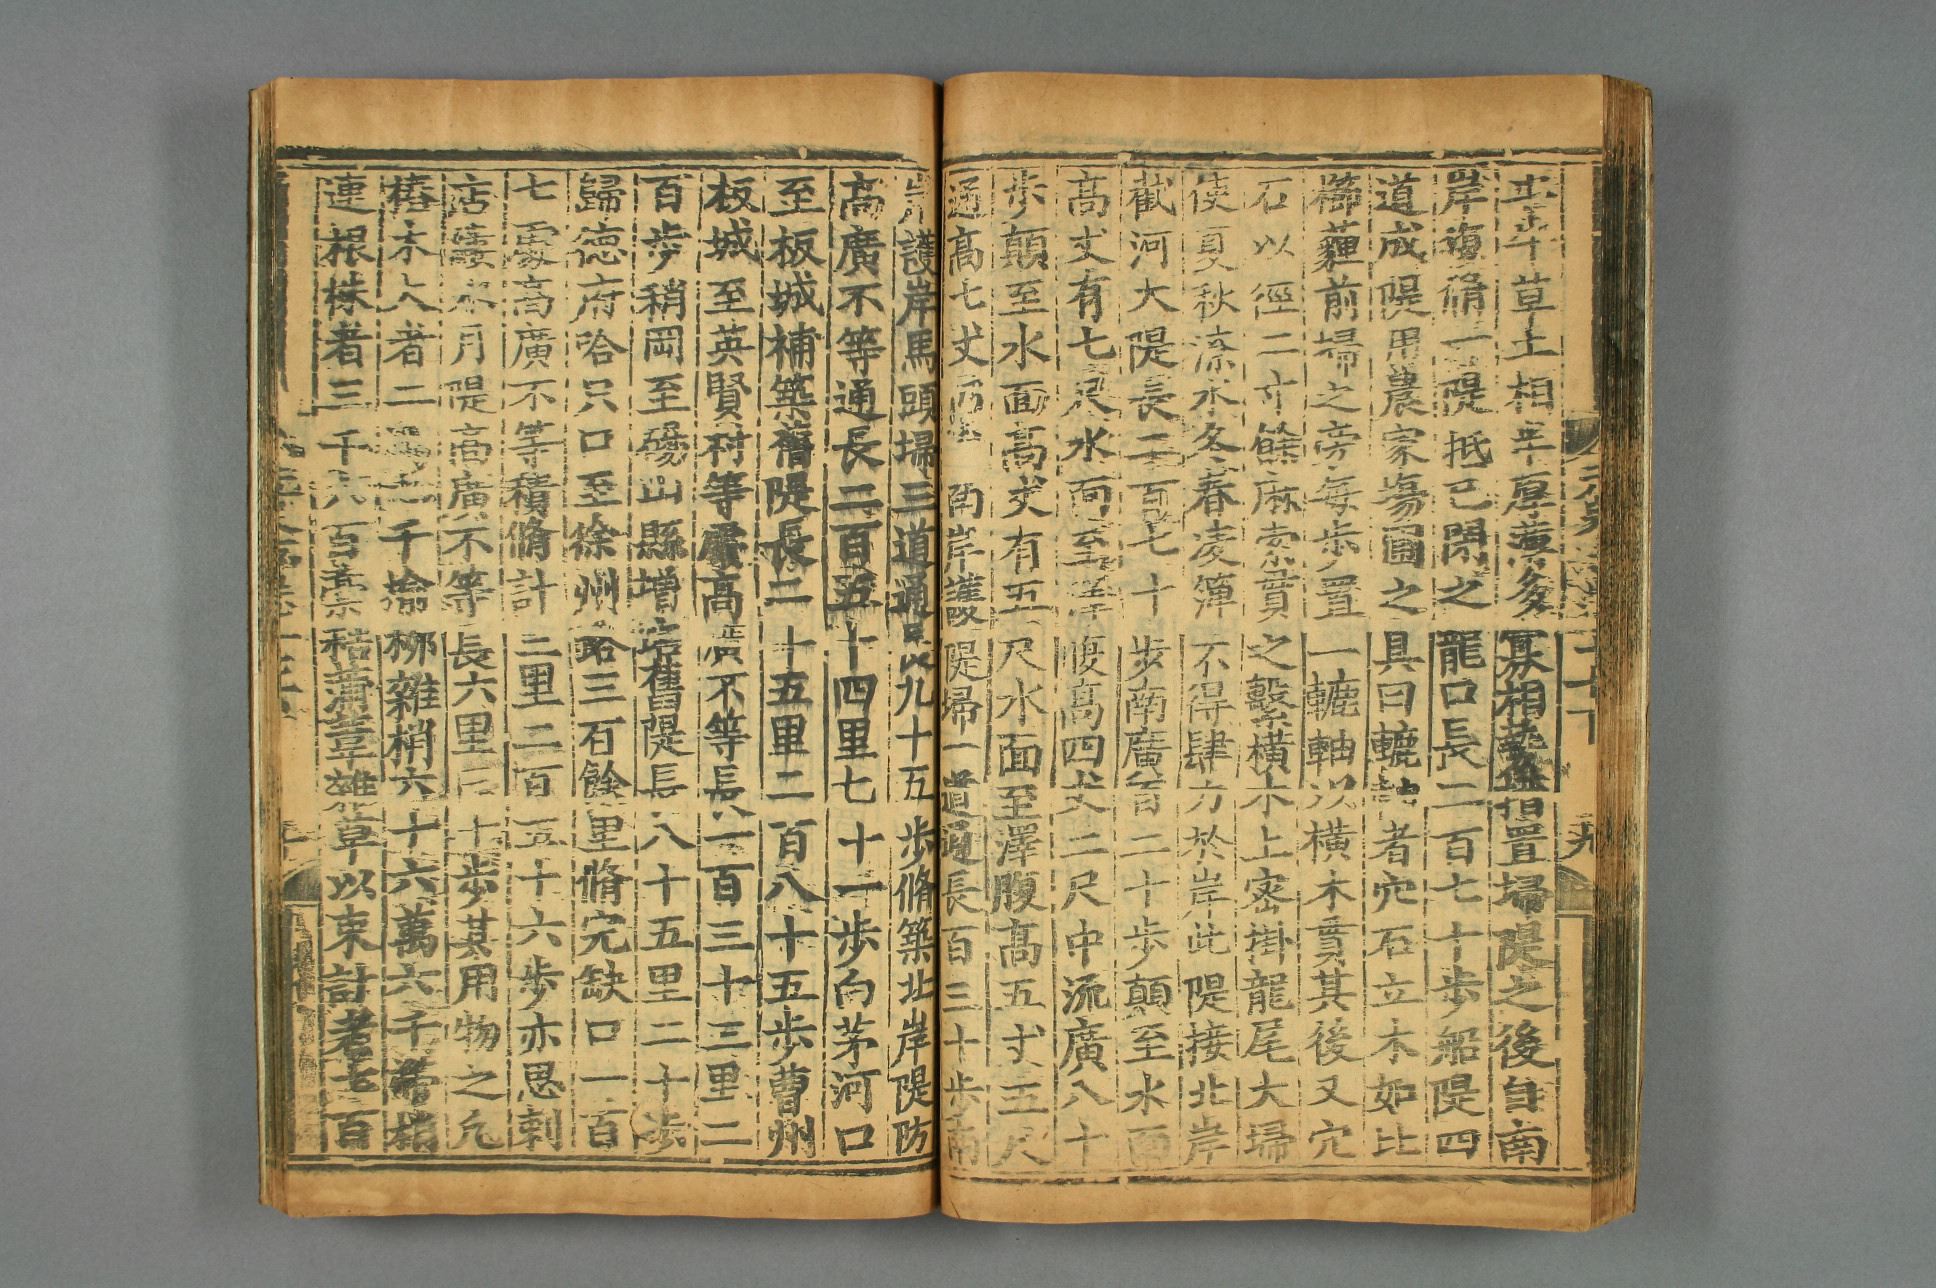 土牽草土相半厚薄多寡相勢措置埽隄之後自南
岸復脩一隄抵已閉之龍口長二百七十步船隄四
道成隄用農家場圃之具曰轆軸者穴石立木如比
櫛薶前埽之旁每步置一轆軸以橫木貫其後又穴
石以徑二寸餘麻索貫之繫橫木上密掛龍尾大埽
使夏秋潦水冬春凌簿不得肆力於岸此隄接北岸
截河大隄長二百七十步南廣百二十步顛至水面
高丈有七尺水面至澤腹高四丈二尺中流廣八十
步顛至水面高丈有五尺水面至澤腹高五丈五尺
通高七丈 南岸護隄埽一道通長百三十步南
岸護岸馬頭埽三道通 九十五步脩築北岸隄防
高廣不等通長二百五十四里七十一步白茅河口
至板城補築舊隄長二十五里二百八十五步曹州
板城至英賢村等處高廣不等長一百三十三里二
百步稍岡至碭山縣增培舊隄長八十五里二十步
歸德府哈只口至徐州路三百餘里脩完缺口一百
七處高廣不等積脩計三里二百五十六步亦思剌
店縷水月隄高廣不等長六里三十步其用物之凡
樁木大者二萬七千榆柳雜梢六十六萬六千帶梢
連根株者三千六百藁秸蒲葦雜草以束計者七百